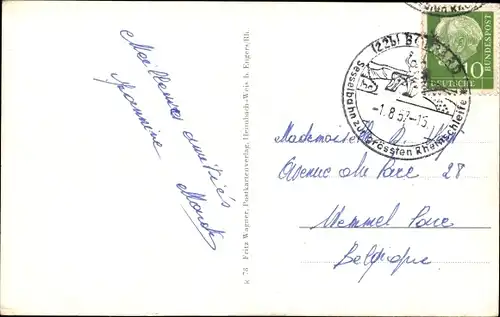 Meilleures amitiés
Jeannine
k 78 Fritz Wagner, Postkartenverlag, Heimbach-Weis b. Engers/Rh.
(22b) BOPPARD
Sesselbahn zur grössten Rheinschleife
-1.8.57-15
DEUTSCHE
BUNDESPOST
10
Mademoiselle
Avenue du Parc 28
Wemmel Parc
Belgique